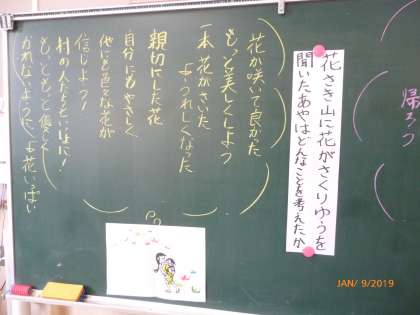 帰ろう
花さき山に花がさくりゆうを
聞いたあやはどんなことを考えたか
花が咲いて良かった
もっと美しくしよう
一本花がさいた
うれしくなった
親切にした花
自分にもやさしく
他にも色々な花が
信じよう!
村の人たちといっしょに!
もっともっと優しく
かれないように、お花いっぱい
JAN/ 9/2019